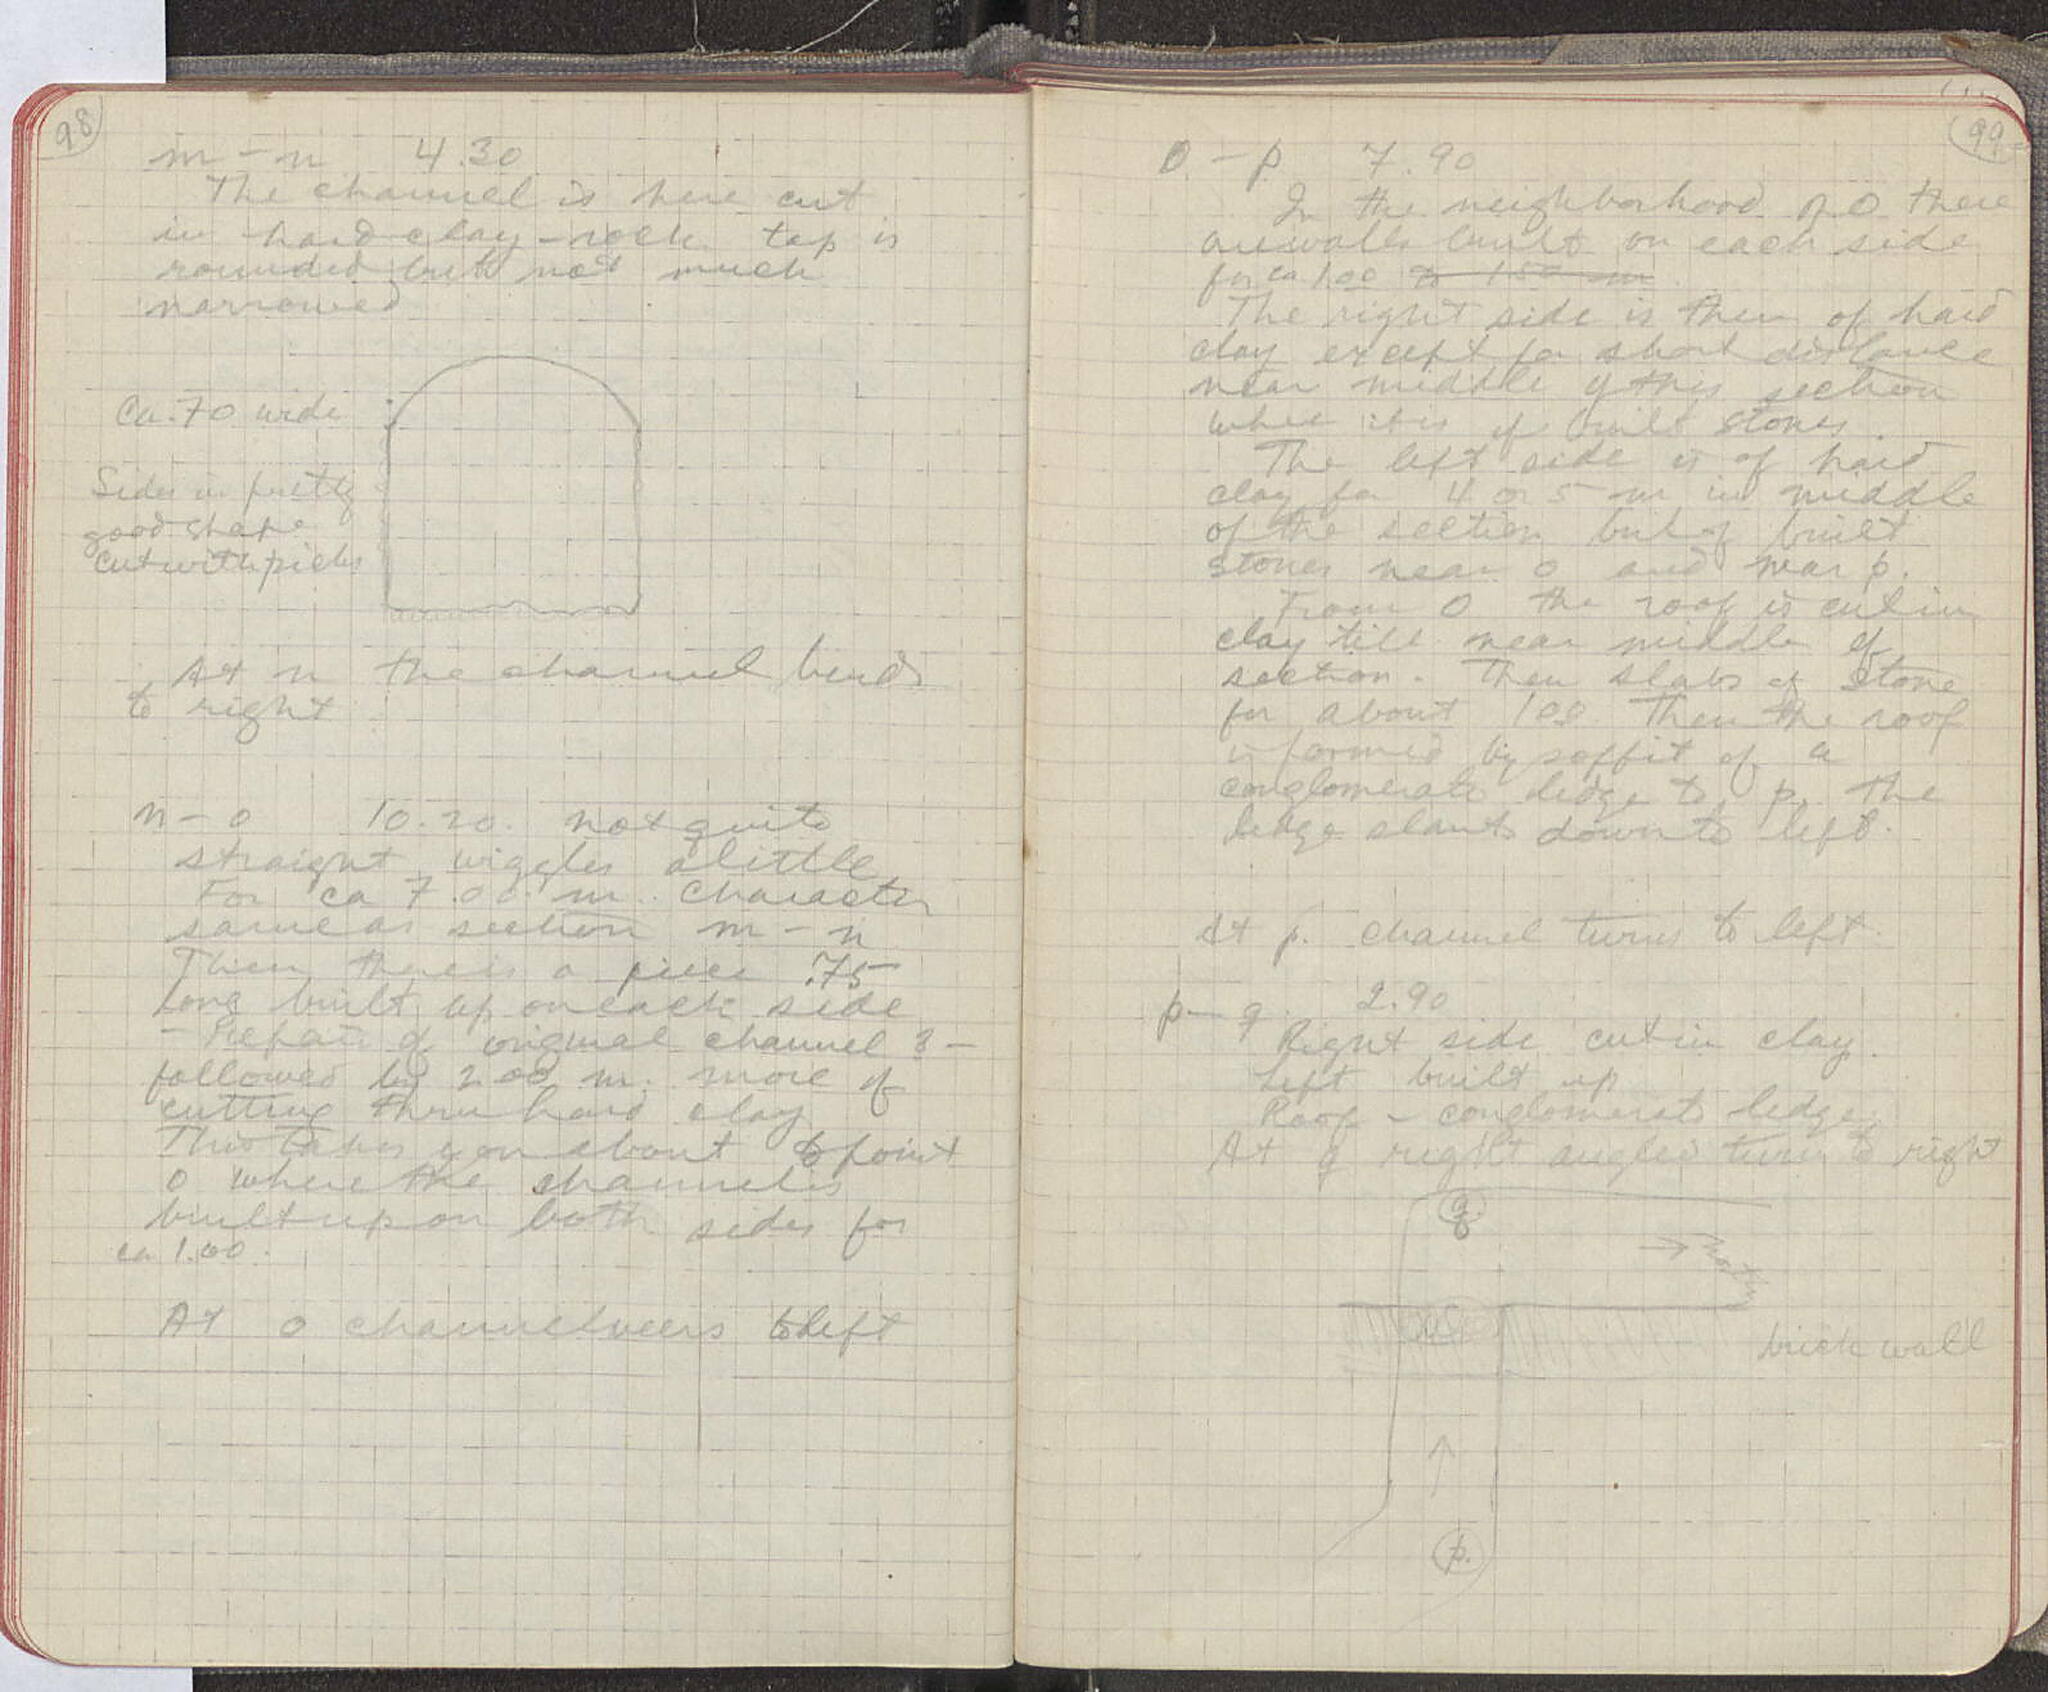 98
m - n 4.30
The channel is here cut
in hard clay - rock top is
rounded but not much
narrowed
Ca .70 wide
Sides in pretty
good shape
cut with picks
At n the channel bends
to right
n - o 10.20. not quite
straight wiggles a little
For ca 7.00 m. character
same as section m - n
Then there is a piece .75
long built up on each side
- Repair of original channel ? -
followed by 2.00 m. more of
cutting thru hard clay
This takes you about to point
o where the channel is
built up on both sides for
ca 1.00.
At o channel veers to left
99
o - p 7.90
In the neighborhood of o there
are walls built on each side
for ca 1.00 to 1.50 m
The right side is then of hard
clay except for short distance
near middle of this section
where it is of built stones.
The left side is of hard
clay for 4 or 5 m in middle
of the section but of built
stones near o and near p.
From o the roof is cut in
clay till near middle of
section. Then slabs of stone
for about 1.00 Then the roof
is formed by soffit of a
conglomerate ledge to p. The
ledge slants down to left.
At p. channel turns to left.
p - q 2.90
Right side cut in clay.
Left built up
Roof - conglomerate ledge.
At q right angled turn to right
q.
brick wall
p.